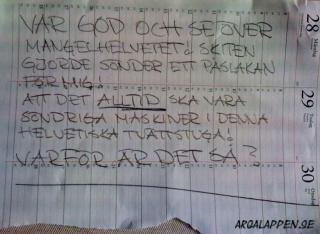 VAR GOD OCH SE ÖVER
MANGELHELVETET! SKITEN
GJORDE SÖNDER ETT PÅSLAKAN
FÖR MIG!
ATT DET ALLTID SKA VARA
SÖNDRIGA MASKINER I DENNA
HELVETISKA TVÄTTSTUGA!
VARFÖR ÄR DET SÅ?
28
29
30
ARGALAPPEN.SE